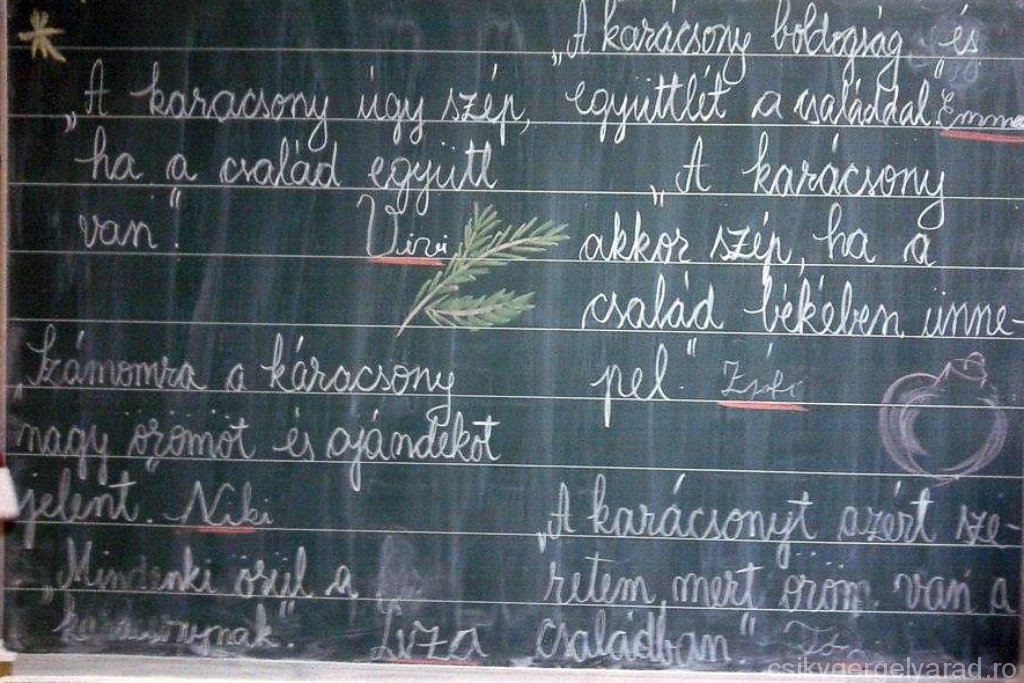 „A karácsony úgy szép,
ha a család együtt
van." Vivi
„Számomra a karácsony
nagy örömöt és ajándékot
jelent. Niki
„Mindenki örül a
karácsonynak". Liza
„A karácsony boldogság és
együttlét a családdal." Emma
„A karácsony
akkor szép, ha a
család békében ünne-
pel." Zsófi
„A karácsonyt azért sze-
retem, mert öröm van a
családban."
csikygergelyarad.ro